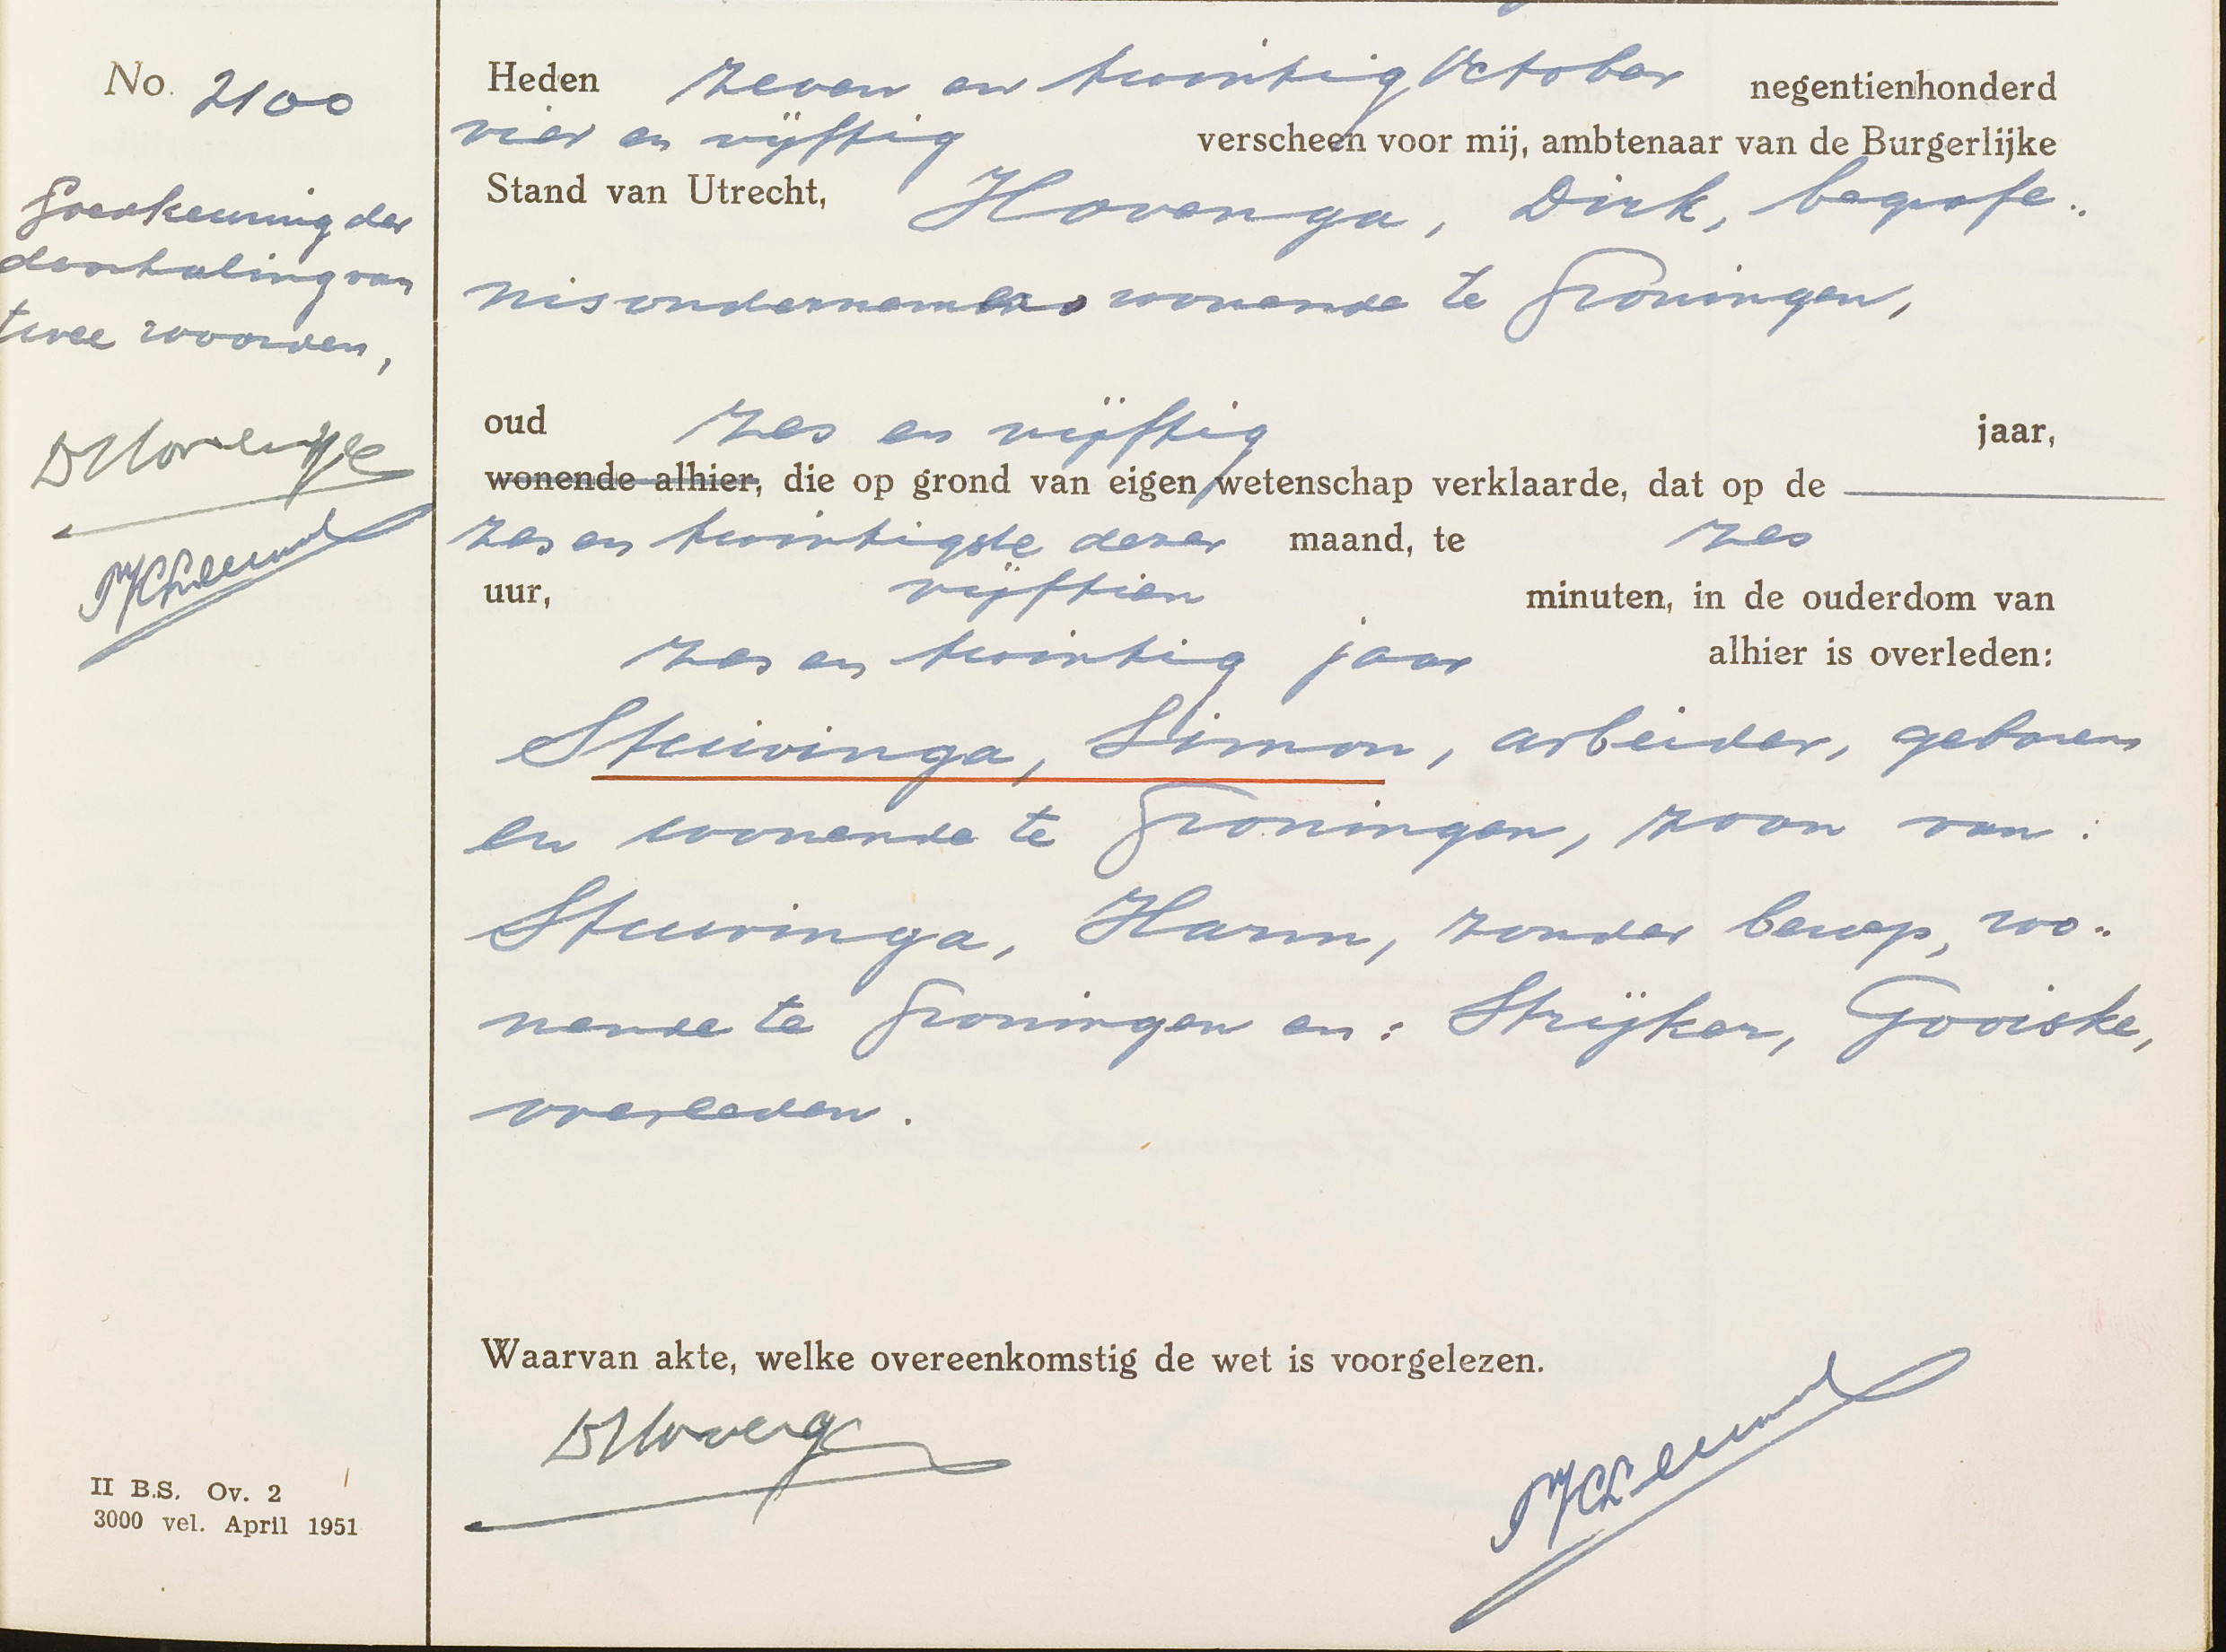 No. 2100
Goedkeuring der
doorhaling van
twee woorden,
DHovenga
Heden zeven en twintig October negentienhonderd
vier en vijftig verscheen voor mij, ambtenaar van de Burgerlijke
Stand van Utrecht, Hovenga, Dirk, begrafe„
nisondernemer wonende te Groningen,
oud zes en vijftig jaar,
wonende alhier, die op grond van eigen wetenschap verklaarde, dat op de
zes en twintigste dezer maand, te zes
uur, vijftien minuten, in de ouderdom van
zes en twintig jaar alhier is overleden:
Stuivinga, Simon, arbeider, geboren
en wonende te Groningen, zoon van:
Stuivinga, Harm, zonder beroep, wo„
nende te Groningen en: Strijker, Gooiske,
overleden.
Waarvan akte, welke overeenkomstig de wet is voorgelezen.
DHovenga
II B.S. Ov. 2
3000 vel. April 1951